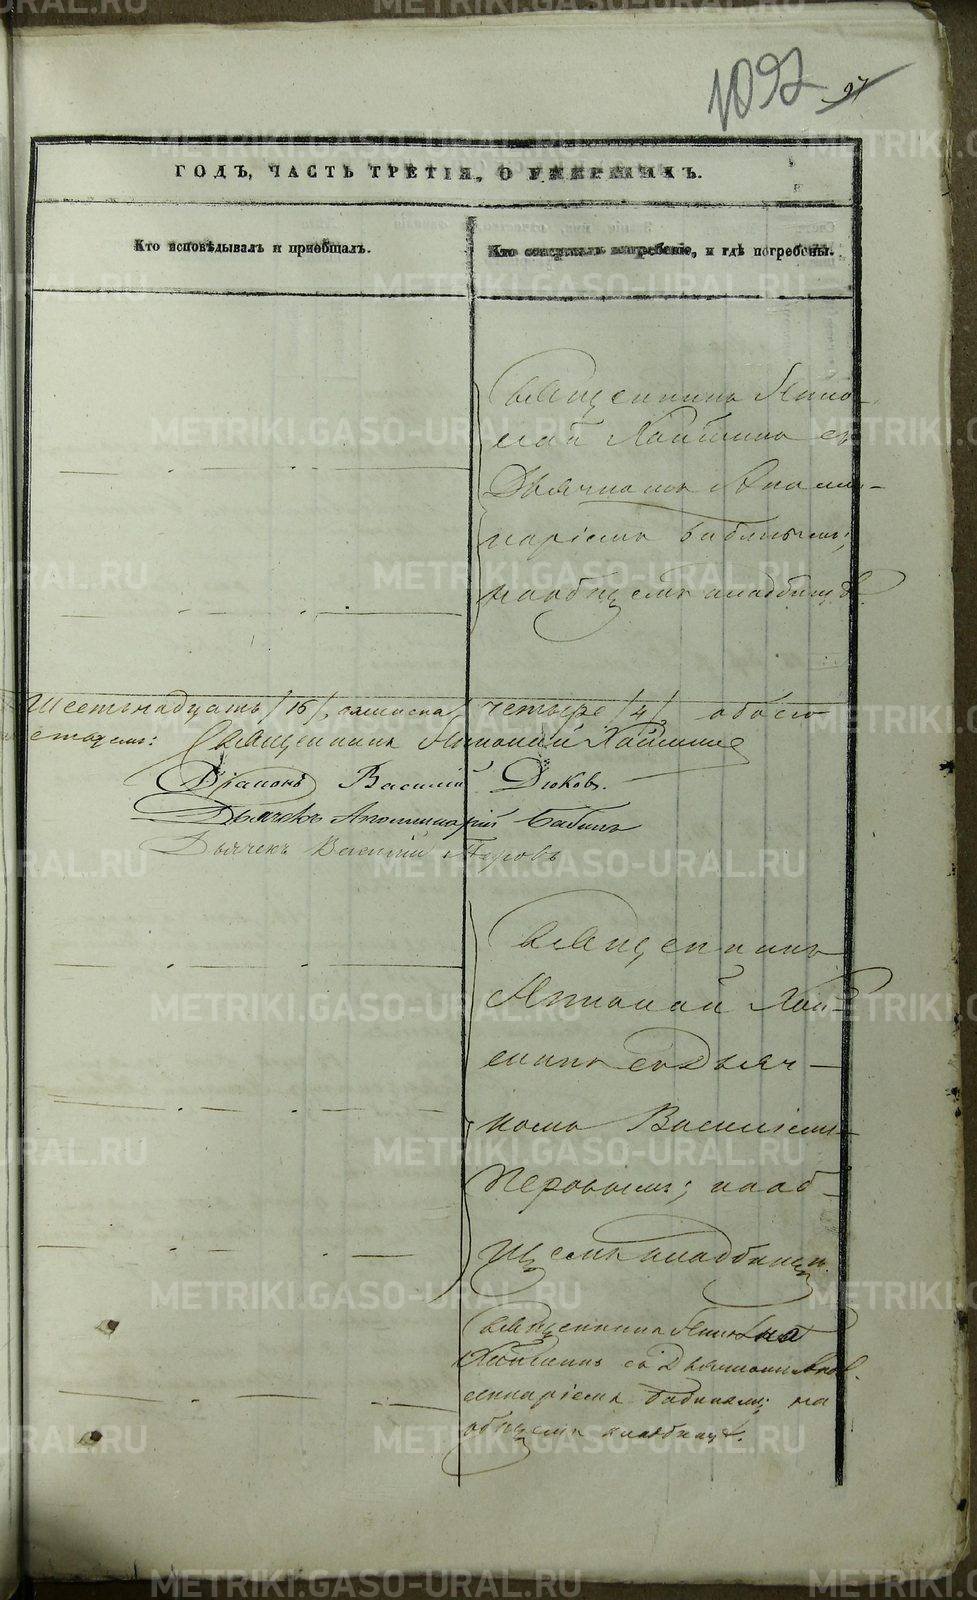 1092 97
ГОДЪ, ЧАСТЬ ТРЕТІЯ, О УМЕРШИХЪ.
Кто исповѣдывалъ и пріобщалъ.
Кто совершалъ погребеніе, и гдѣ погребены.
Священникъ Анто-
ній
съ
Дьячкомъ Аполли-
наріемъ Бабинымъ;
на общемъ кладбищѣ.
Шестьнадцать /16/, женска четыре /4/, обоего
Священникъ Антоній
Діаконъ Василій Дюковъ.
Дьячекъ Аполлинарій Бабинъ
Дьячекъ Василій Перовъ
Священникъ
Антоній
съ Дьяч-
комъ Василіемъ
Перовымъ; на об-
щемъ кладбищѣ.
Священникъ Антоній
съ Дьячкомъ Апол-
линаріемъ Бабинымъ; на
общемъ кладбищѣ.
METRIKI.GASO-URAL.RU